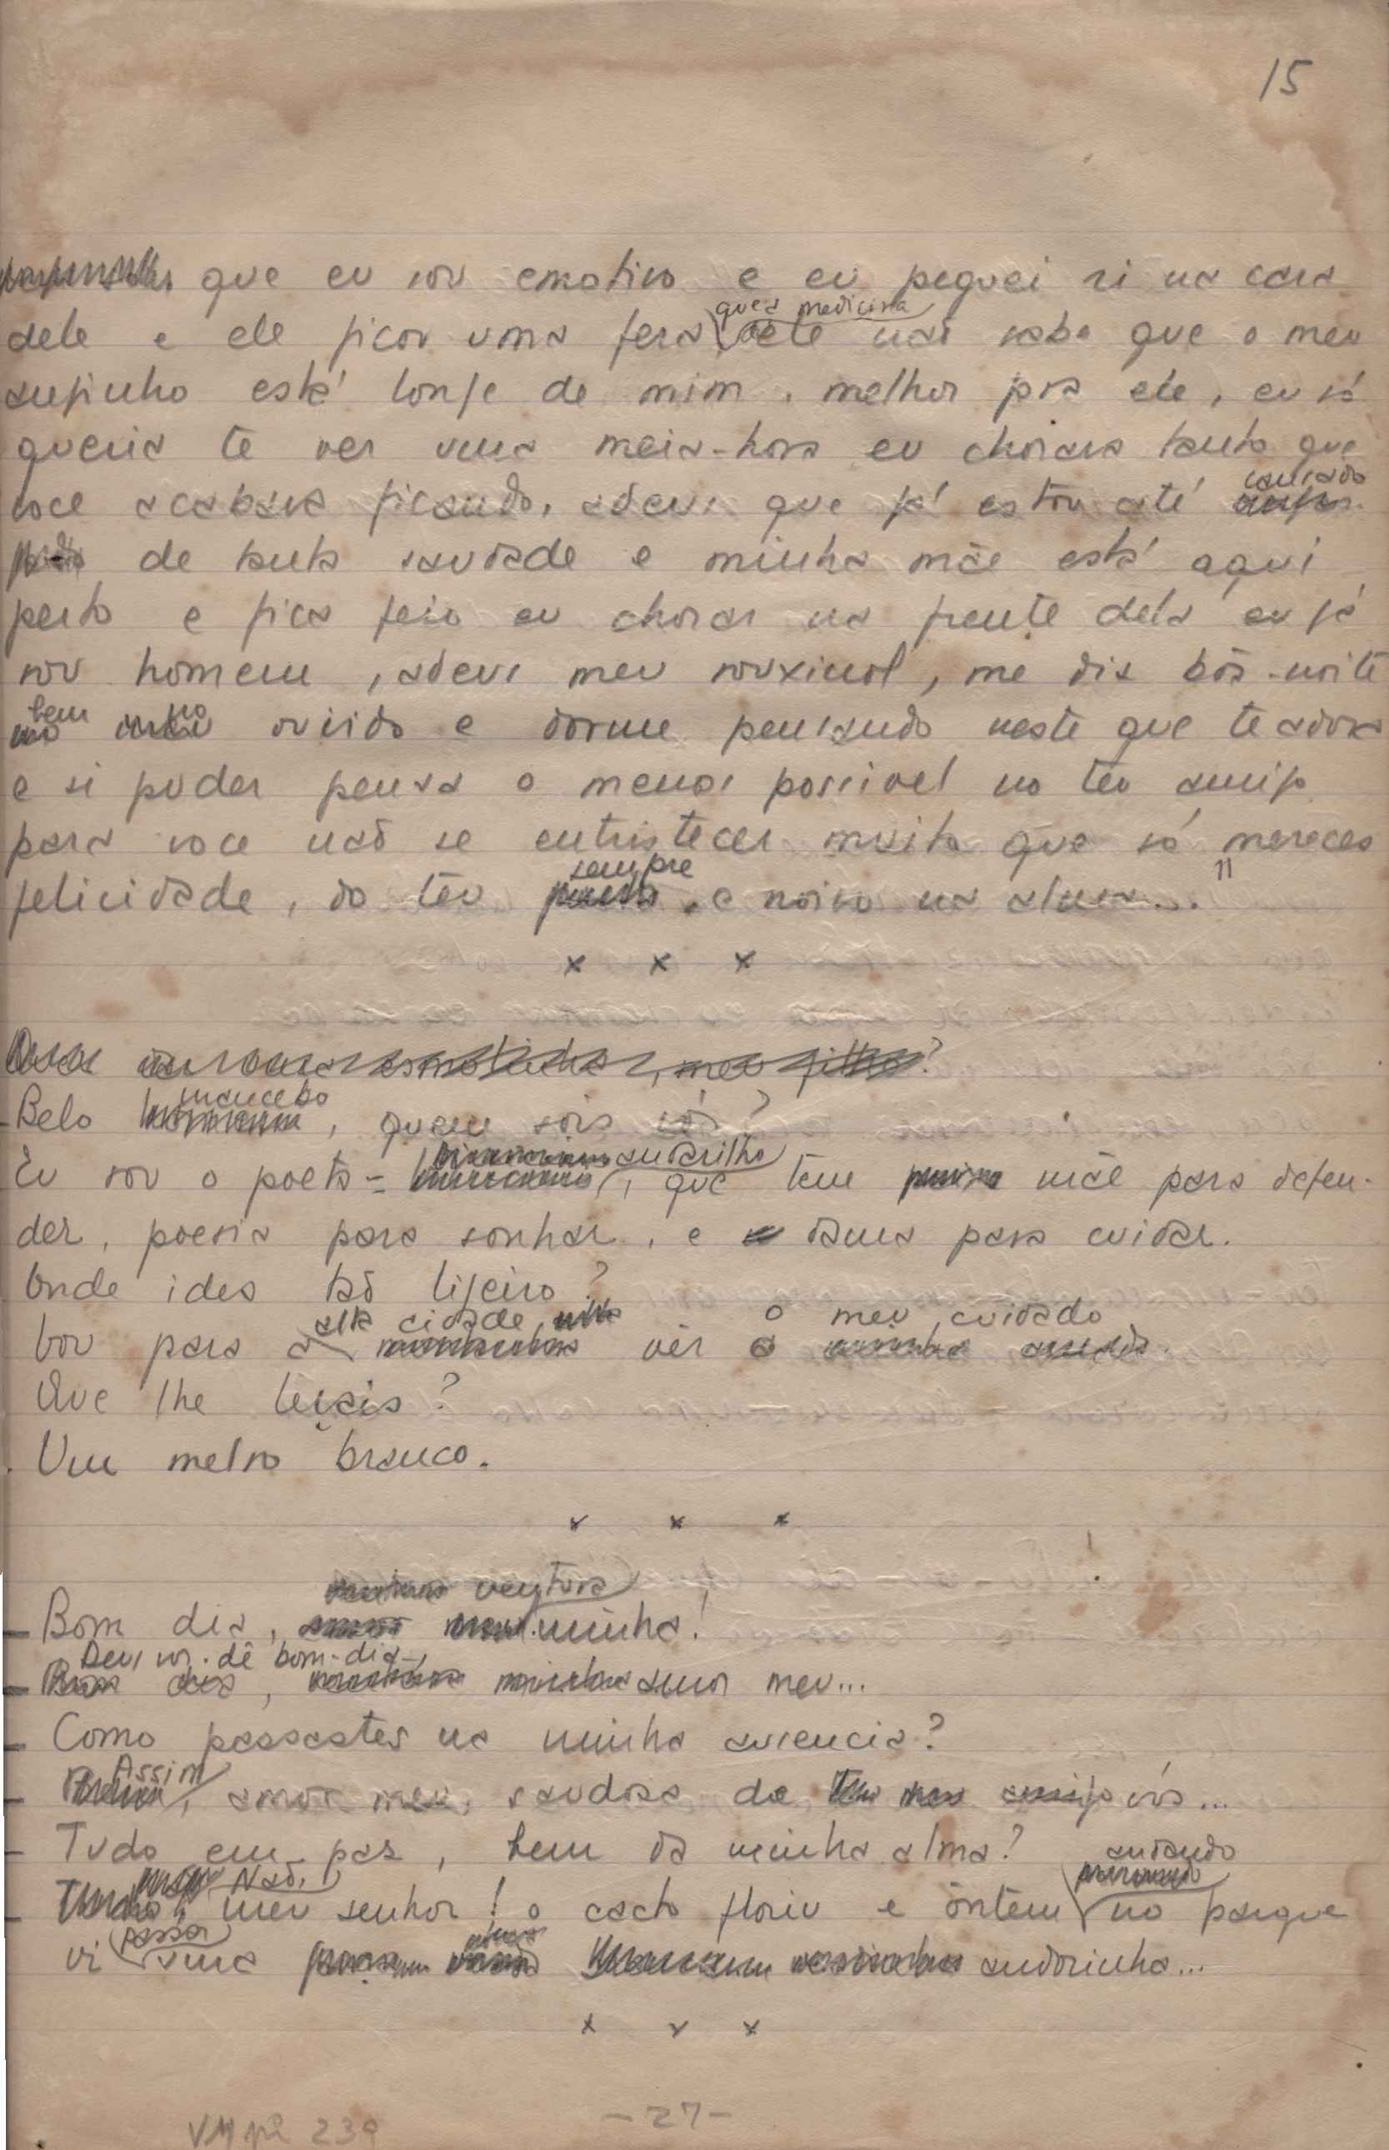 15
que eu sou emotivo e eu peguei ri na cara
dele e ele ficou uma fera que a medicina dele não sabe que o meu
anjinho está longe de mim, melhor pra ele, eu só
queria te ver uma meia-hora eu chorava tanto que
voce acabava ficando, adeus que já estou até cansado
de tanta saudade e minha mãe está aqui
perto e fica feio eu chorar na frente dela eu já
sou homem, adeus meu rouxinol, me diz bôa-noite
bem no ouvido e dorme pensando neste que te adora
e si puder pensa o menos possivel no teu amigo
para voce não se entristecer muito que só mereces
felicidade, do teu sempre e noivo na alma..."
x x x
esmolinha, meu filho?
- Belo mancebo, quem sois vós?
Eu sou o poeta-andarilho, que tem mãe para defen-
der, poesia para sonhar, e dama para cuidar.
Onde ides tão ligeiro?
Vou para alta cidade, vêr o meu cuidado
Que lhe levais?
Um melro branco.
x x x
- Bom dia, ventura minha!
- Deus vos dê bom-dia, amor meu...
- Como passastes na minha ausencia?
- Assim, amor meu, saudosa de vós...
- Tudo em paz, bem da minha alma?
- Não, meu senhor! o cacto floriu e ôntem andando no parque
vi passar uma andorinha...
x x x
- 27 -
VM pi 239